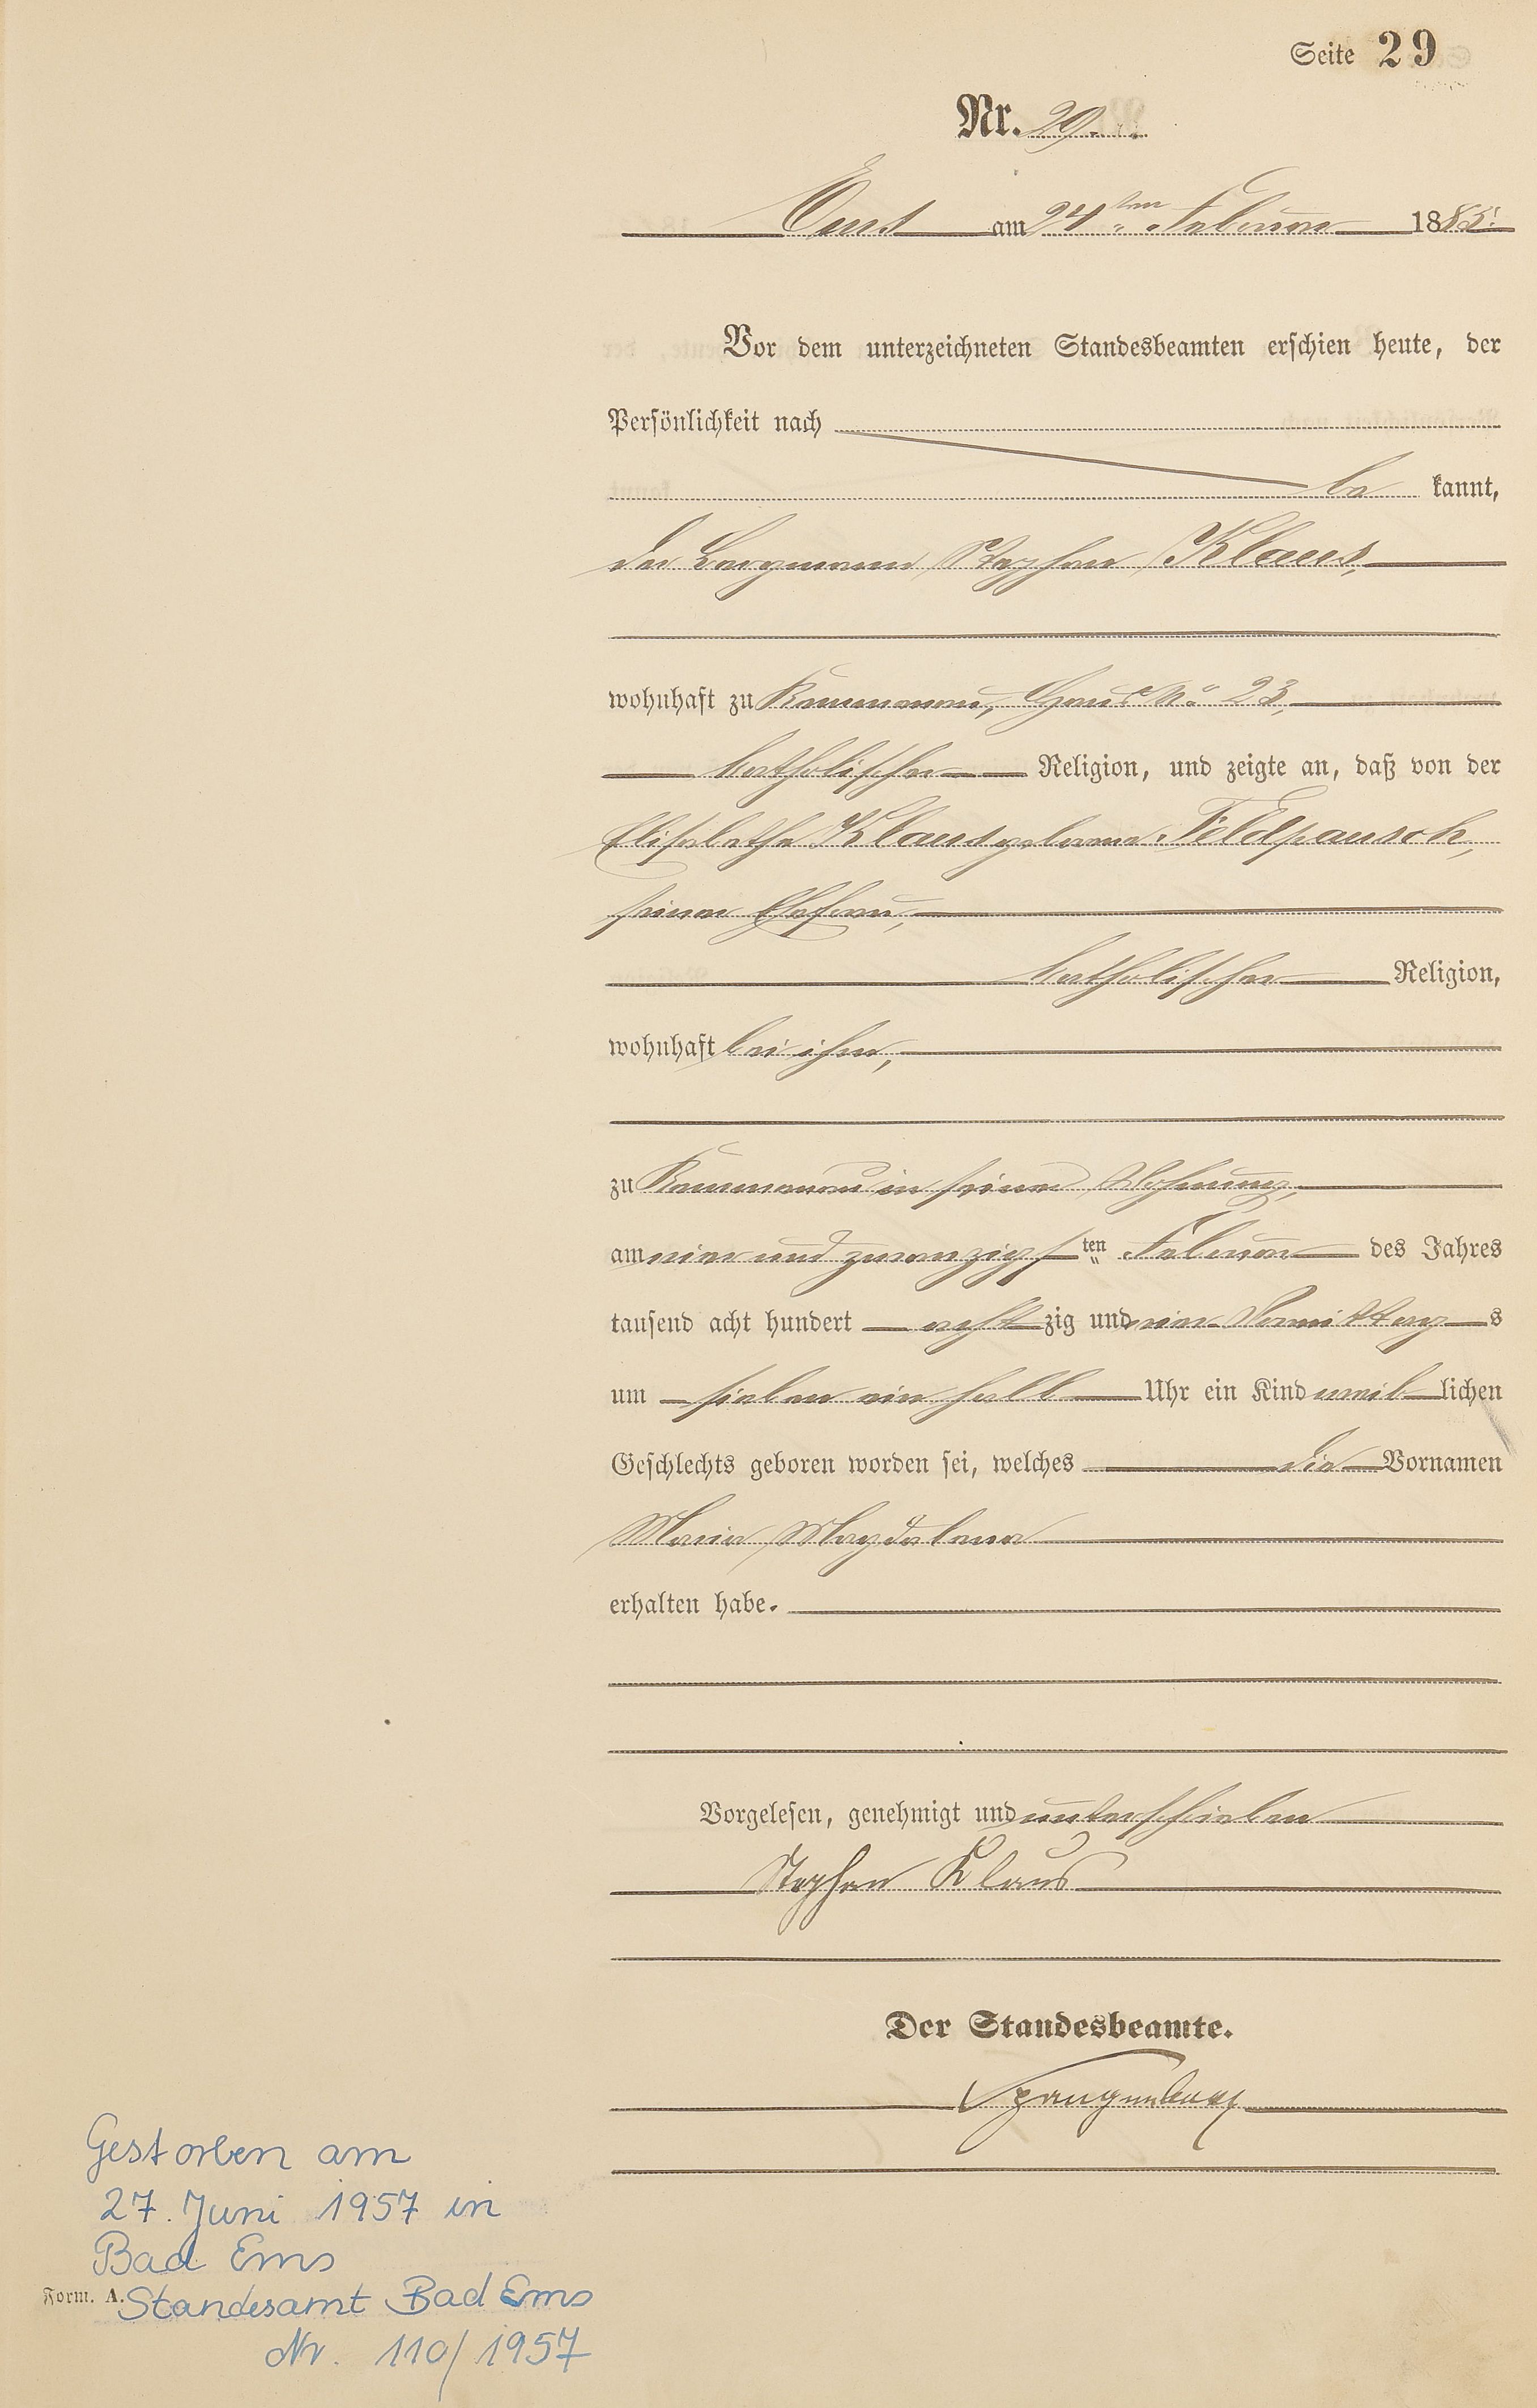 Seite 29
Nr. 29.
Ems am 24ten Februar 1885.
Vor dem unterzeichneten Standesbeamten erschien heute, der
Persönlichkeit nach
be kannt,
der Bergmann Stephan Klaus,
wohnhaft zu Kemmenau, Haus No 23,
katholischer Religion, und zeigte an, daß von der
Elisabetha Klaus geborene Feldpausch,
seiner Ehefrau,
katholischer Religion,
wohnhaft bei ihm,
zu Kemmenau in seiner Wohnung,
am vier und zwanzigsten Februar des Jahres
tausend acht hundert acht zig und Vormittags
um sieben ein halb Uhr ein Kind weib lichen
Geschlechts geboren worden sei, welches die Vornamen
Maria Magdalena
erhalten habe.
Vorgelesen, genehmigt und unterschrieben
Stephan Klaus
Der Standesbeamte.
Spangenberg
Gestorben am
27. Juni 1957 in
Bad Ems
Form. A. Standesamt Bad Ems
Nr. 110/1957